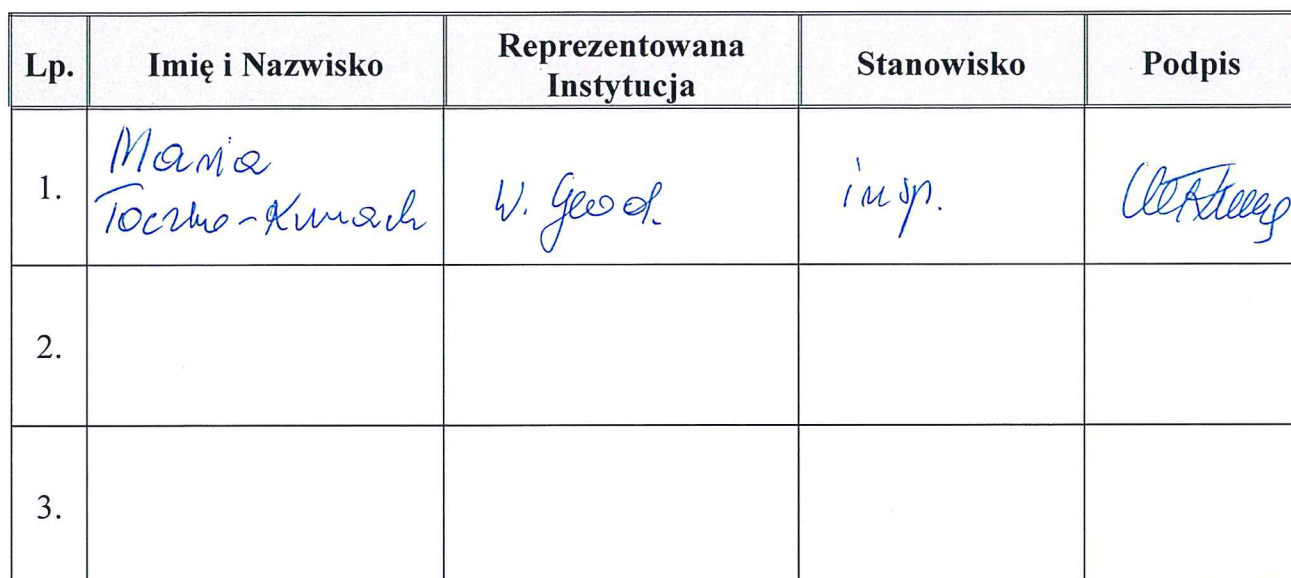 Lp. Imię i Nazwisko Reprezentowana Instytucja Stanowisko Podpis
1. Maria W. Geod. insp.
2.
3.